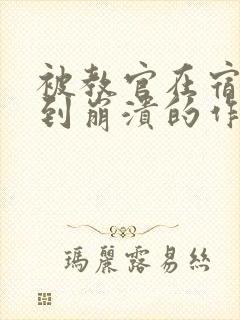 被教官在宿
到崩溃的作
瑪麗露易絲